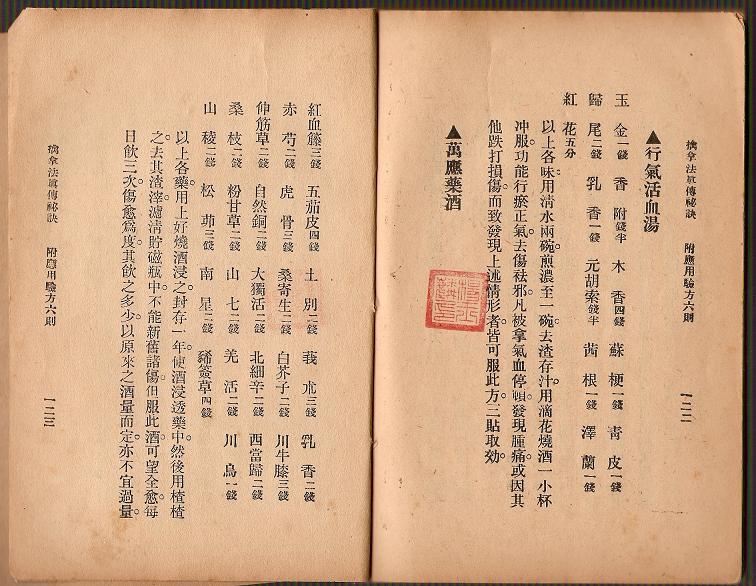 擒拿法眞傳祕訣　附應用驗方六則　一二二
▲行氣活血湯
玉　金一錢　香　附錢半　木　香四錢　蘇　梗一錢　靑　皮一錢
歸　尾二錢　乳　香一錢　元胡索錢半　茜　根一錢　澤　蘭一錢
紅　花五分
以上各味。用淸水兩碗。煎濃至一碗。去渣存汁。用滴花燒酒一小杯
冲服。功能行瘀正氣。去傷袪邪。凡被拿氣血停頓。發現腫痛。或因其
他跌打損傷。而致發現上述情形者。皆可服此方。三貼取効。
▲萬應藥酒
擒拿法眞傳祕訣　附應用驗方六則　一二三
紅血籐三錢　五茄皮四錢　土　別二錢　莪　朮三錢　乳　香二錢
赤　芍二錢　虎　骨三錢　桑寄生二錢　白芥子二錢　川牛膝三錢
伸筋草二錢　自然銅二錢　大獨活二錢　北細辛二錢　西當歸二錢
桑　枝二錢　粉甘草二錢　山　七二錢　羌　活二錢　川　烏一錢
山　稜二錢　松　茆三錢　南　星二錢　豨簽草四錢
以上各藥。用上好燒酒浸之。封存一年。使酒浸透藥中。然後用楂楂
之。去其渣滓。濾淸貯磁瓶中。不能新舊諸傷。但服此酒。可望全愈。每
日飮三次。傷愈爲度。其飮之多少。以原來之酒量而定。亦不宜過量。